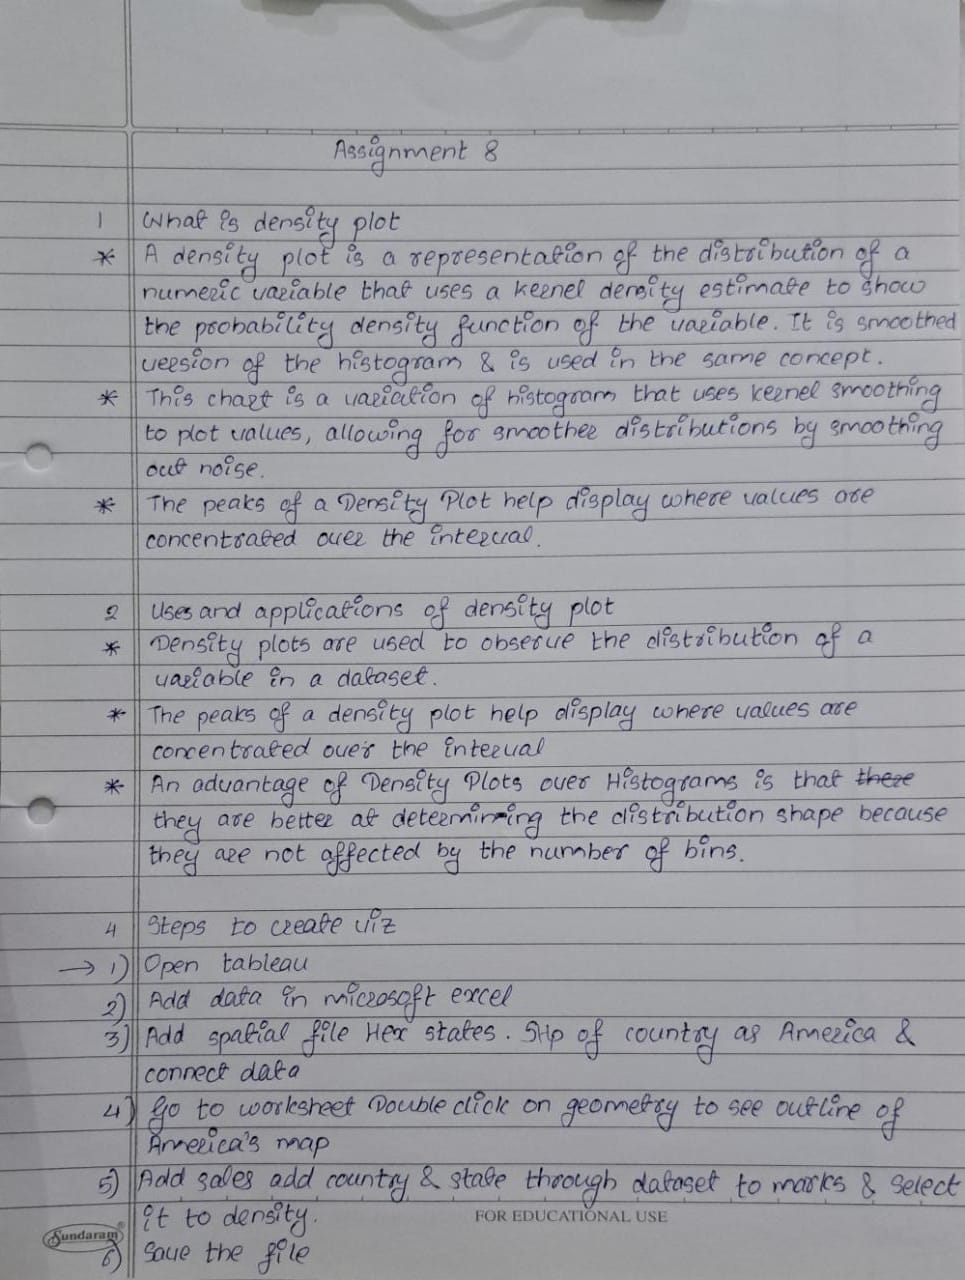 Assignment 8
1 What is density plot
* A density plot is a representation of the distribution of a
numeric variable that uses a kernel density estimate to show
the probability density function of the variable. It is smoothed
version of the histogram & is used in the same concept.
* This chart is a variation of histogram that uses kernel smoothing
to plot values, allowing for smoother distributions by smoothing
out noise.
* The peaks of a Density Plot help display where values are
concentrated over the interval.
2 Uses and applications of density plot
* Density plots are used to observe the distribution of a
variable in a dataset.
* The peaks of a density plot help display where values are
concentrated over the interval
* An advantage of Density Plots over Histograms is that there
they are better at determining the distribution shape because
they are not affected by the number of bins.
4 Steps to create viz
→ 1) Open tableau
2) Add data in microsoft excel
3) Add spatial file Hex states. Shp of country as America &
connect data
4) Go to worksheet Double click on geometry to see outline of
America's map
5) Add sales add country & state through dataset to marks & Select
it to density.
FOR EDUCATIONAL USE
Sundaram®
6) Save the file